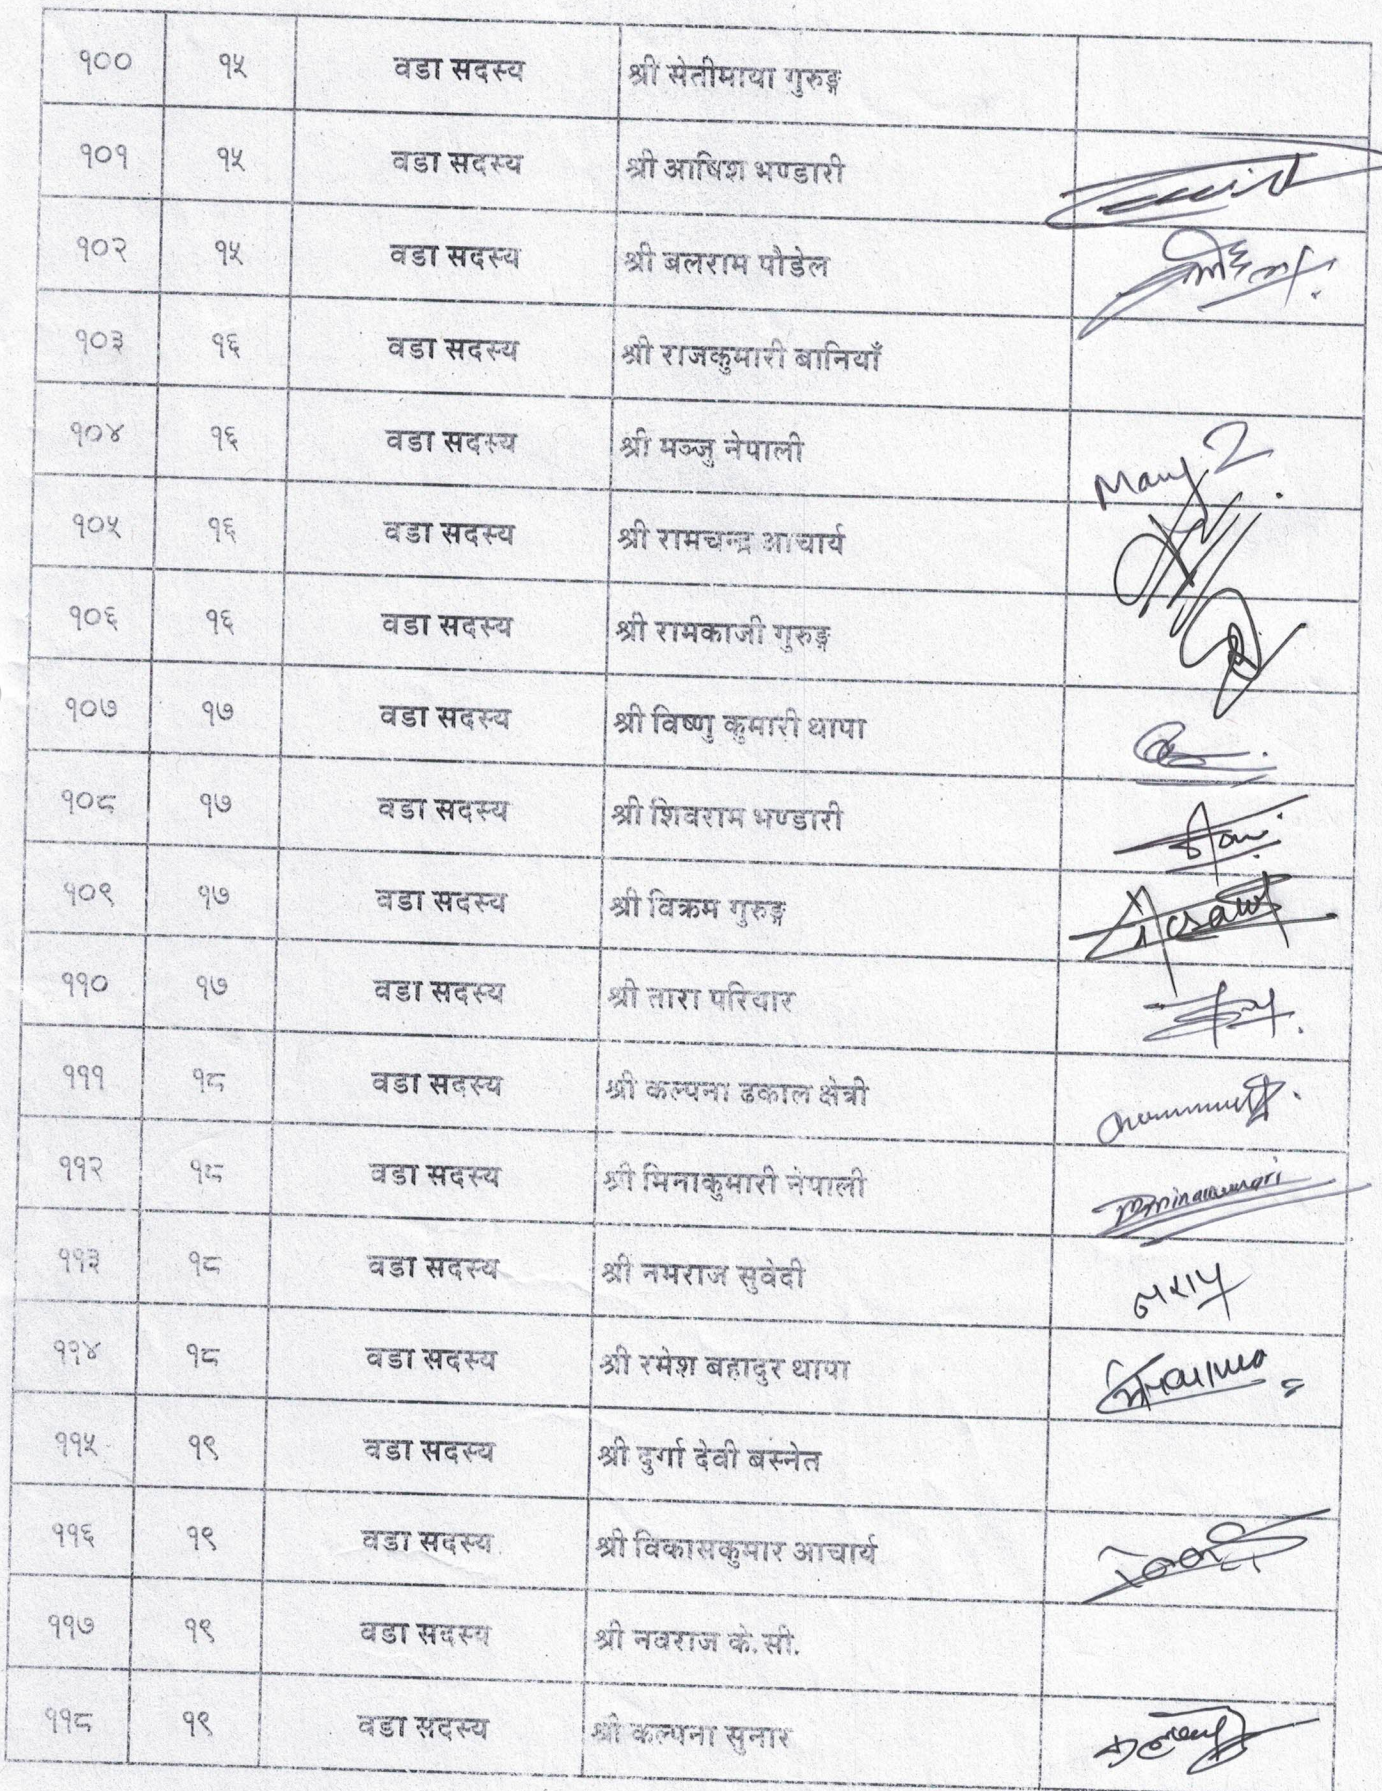 १०० १५ वडा सदस्य श्री सेतीमाया गुरुङ्ग
१०१ १५ वडा सदस्य श्री आषिश भण्डारी
१०२ १५ वडा सदस्य श्री बलराम पौडेल
१०३ १६ वडा सदस्य श्री राजकुमारी बानियाँ
१०४ १६ वडा सदस्य श्री मञ्जु नेपाली
१०५ १६ वडा सदस्य श्री रामचन्द्र आचार्य
१०६ १६ वडा सदस्य श्री रामकाजी गुरुङ्ग
१०७ १७ वडा सदस्य श्री विष्णु कुमारी थापा
१०८ १७ वडा सदस्य श्री शिवराम भण्डारी
१०९ १७ वडा सदस्य श्री विक्रम गुरुङ्ग
११० १७ वडा सदस्य श्री तारा परियार
१११ १८ वडा सदस्य श्री कल्पना ढकाल क्षेत्री
११२ १८ वडा सदस्य श्री मिनाकुमारी नेपाली
११३ १८ वडा सदस्य श्री नमराज सुवेदी
११४ १८ वडा सदस्य श्री रमेश बहादुर थापा
११५ १९ वडा सदस्य श्री दुर्गा देवी बस्नेत
११६ १९ वडा सदस्य श्री विकासकुमार आचार्य
११७ १९ वडा सदस्य श्री नवराज के.सी.
११८ १९ वडा सदस्य श्री कल्पना सुनार